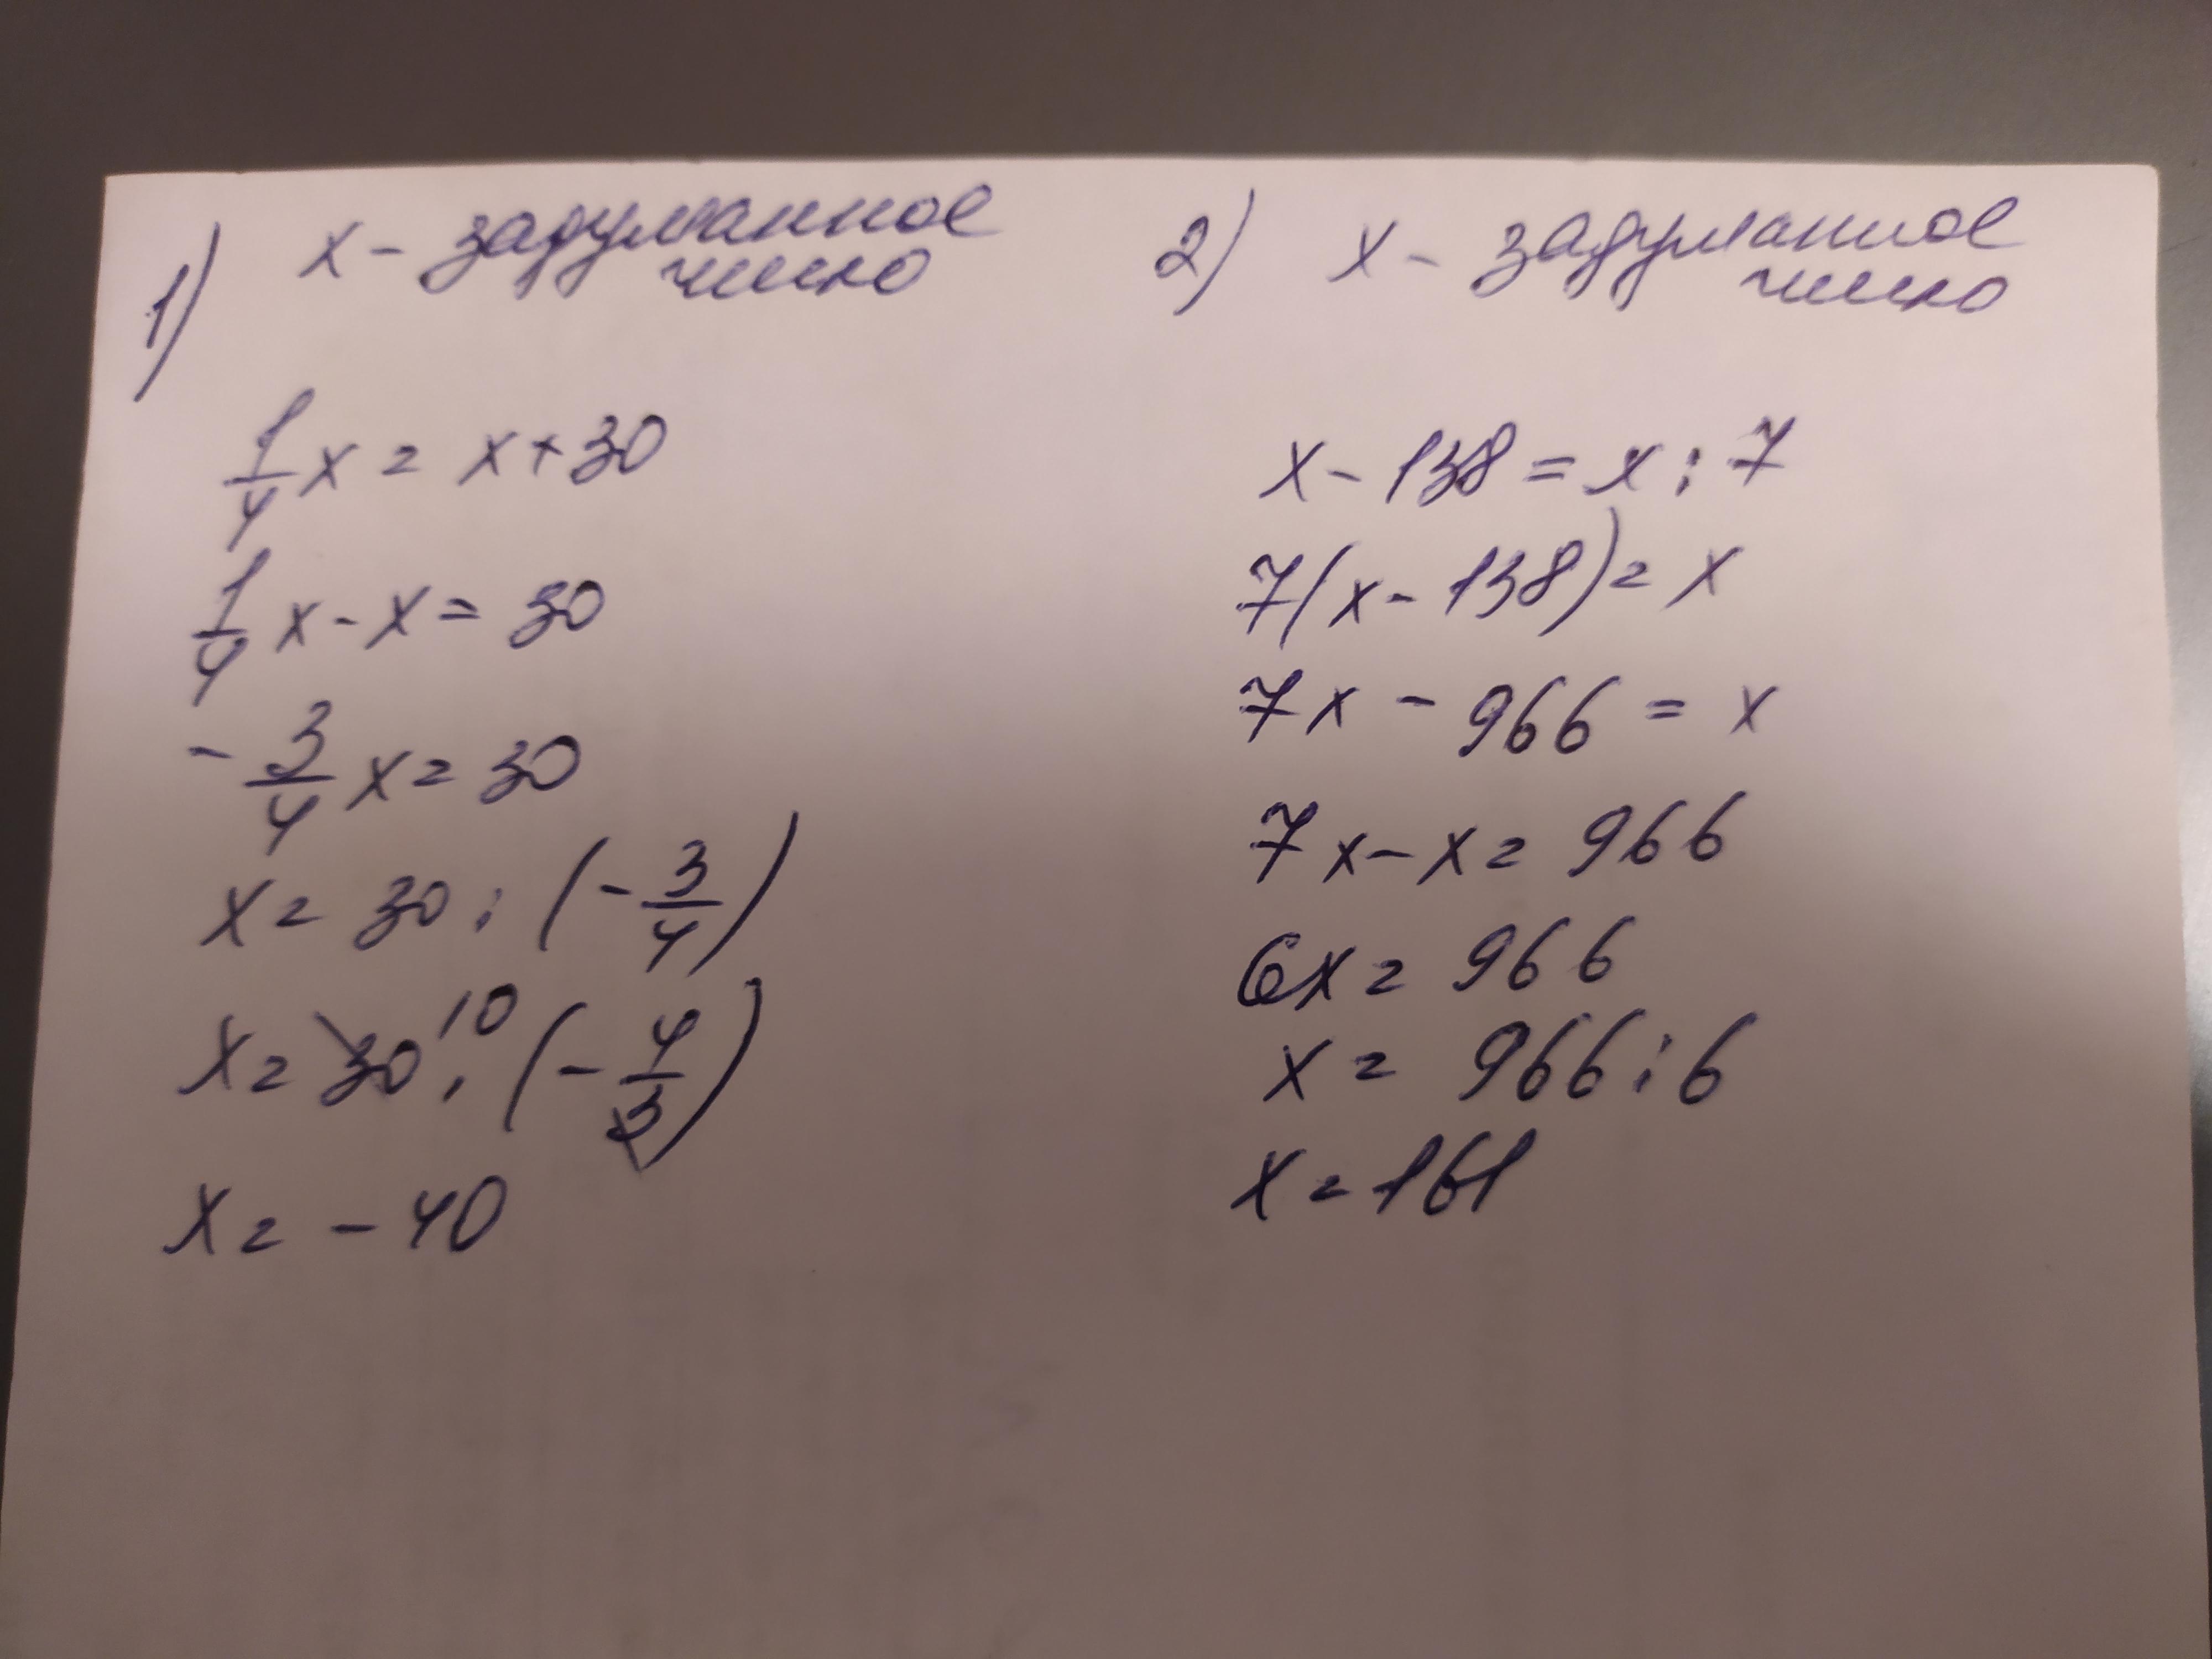 1) x - задуманное
число
1/4 x = x + 30
1/4 x - x = 30
- 3/4 x = 30
x = 30 : (- 3/4)
x = 30 10 . (- 4/3)
x = - 40
2) x - задуманное
число
x - 138 = x : 7
7(x - 138) = x
7x - 966 = x
7x - x = 966
6x = 966
x = 966 : 6
x = 161